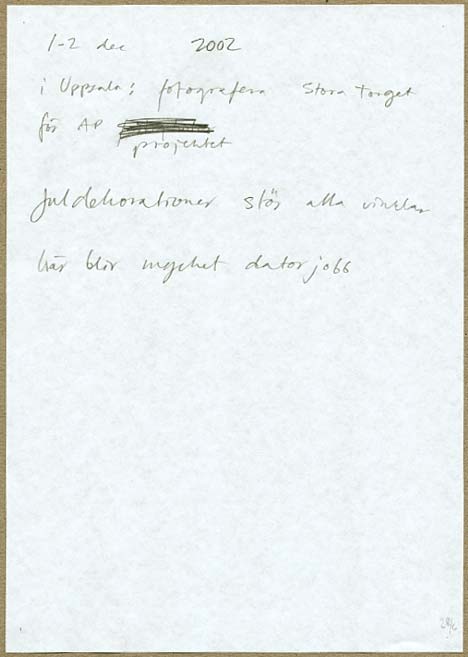 1-2 dec 2002
i Uppsala: fotografera Stora Torget
för AP
projektet
Juldekorationer stör alla vinklar
här blir mycket datorjobb